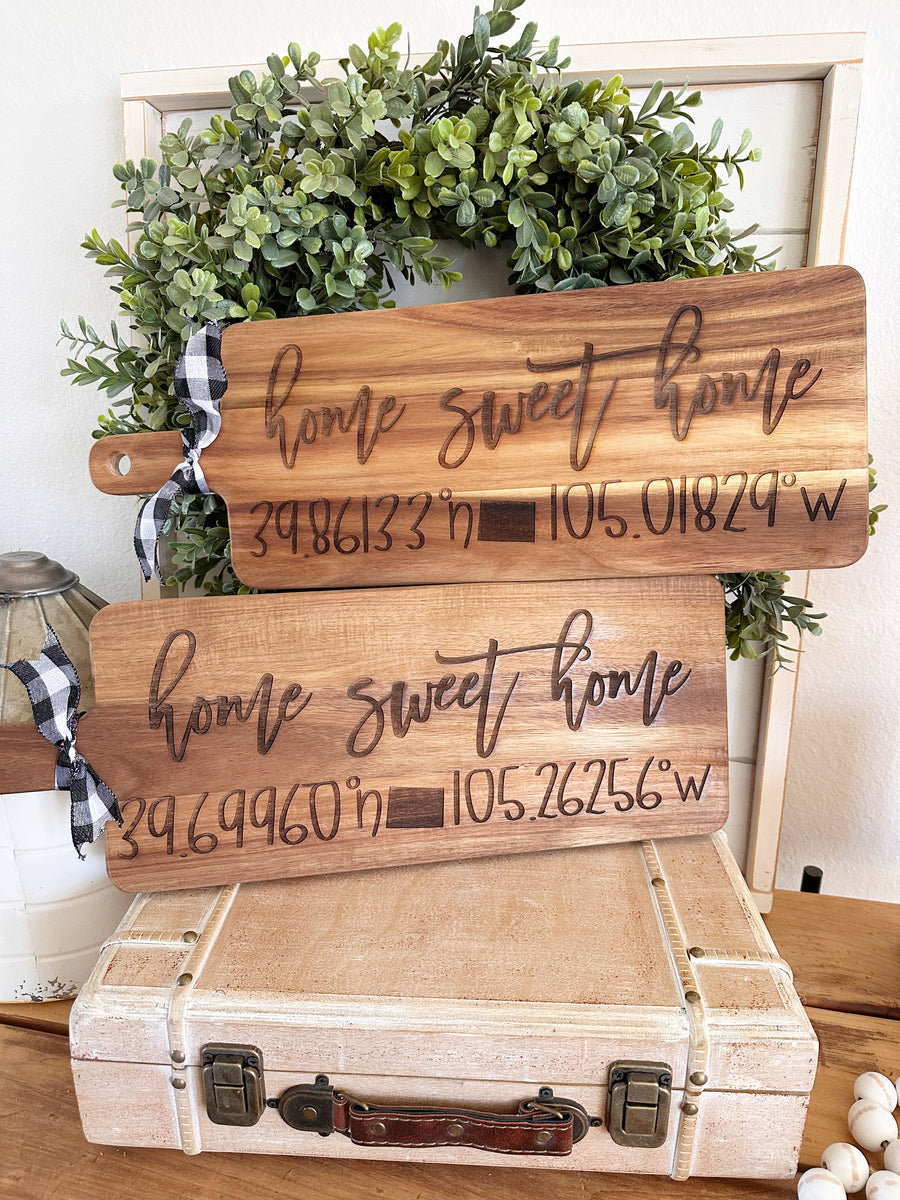 home sweet home
39.86133°n 105.01829°w
home sweet home
39.69960°n 105.26256°w